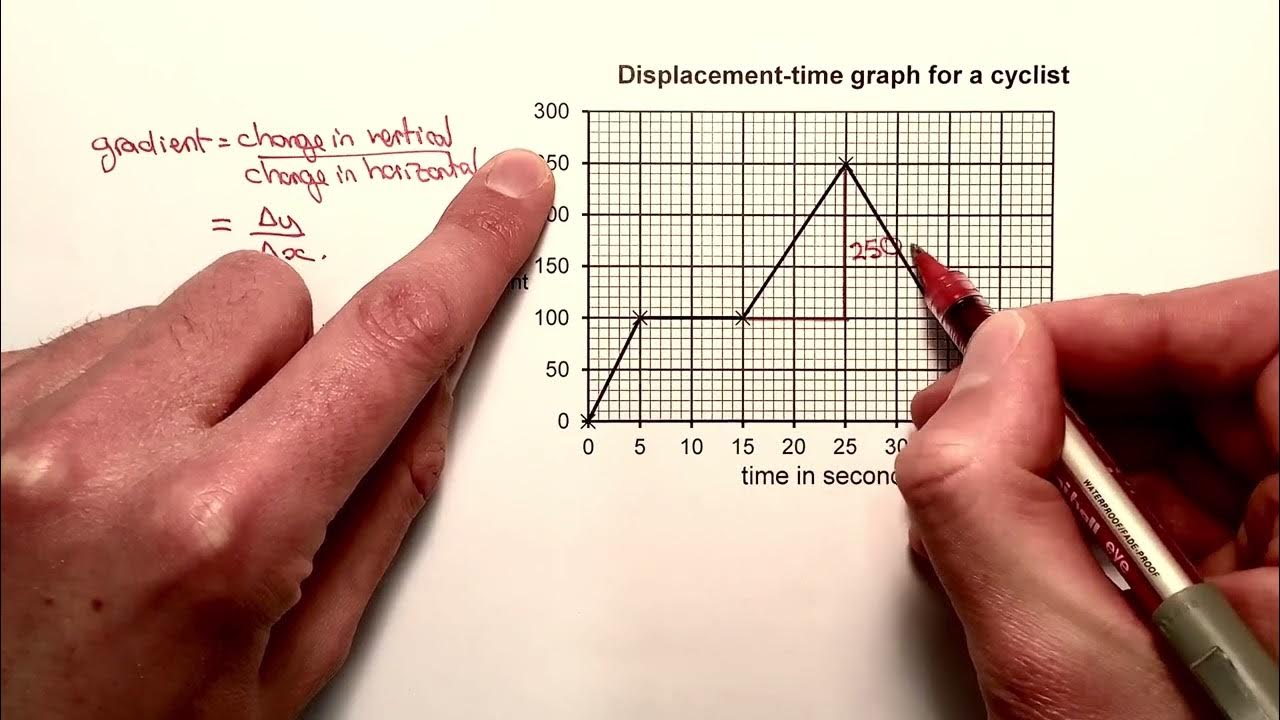 Displacement-time graph for a cyclist
gradient = change in vertical
change in horizontal
= Δy
Δx.
300
50
00
150
100
50
0
250
0 5 10 15 20 25 30
time in secon
nt
WATERPROOF/FADE-PROOF
ball eye